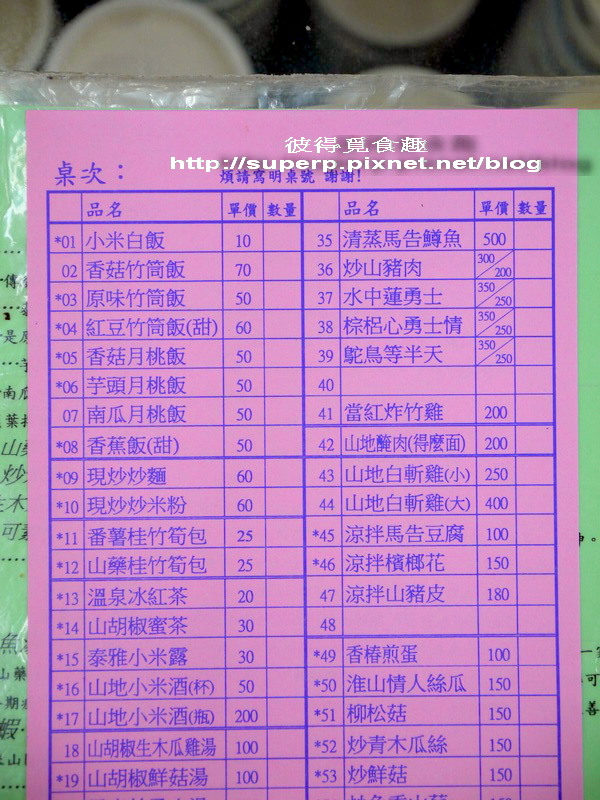 彼得覓食趣
http://superp.pixnet.net/blog
桌次：
煩請寫明桌號 謝謝!
品名 單價 數量
*01 小米白飯 10
02 香菇竹筒飯 70
*03 原味竹筒飯 50
*04 紅豆竹筒飯(甜) 60
*05 香菇月桃飯 50
*06 芋頭月桃飯 50
07 南瓜月桃飯 50
*08 香蕉飯(甜) 50
*09 現炒炒麵 60
*10 現炒炒米粉 60
*11 番薯桂竹筍包 25
*12 山藥桂竹筍包 25
*13 溫泉冰紅茶 20
*14 山胡椒蜜茶 30
*15 泰雅小米露 30
*16 山地小米酒(杯) 50
*17 山地小米酒(瓶) 200
18 山胡椒生木瓜雞湯 100
*19 山胡椒鮮菇湯 100
品名 單價 數量
35 清蒸馬告鱒魚 500
36 炒山豬肉 300/200
37 水中蓮勇士 350/250
38 棕梠心勇士情 350/250
39 鴕鳥等半天 350/250
40
41 當紅炸竹雞 200
42 山地醃肉(得麼面) 200
43 山地白斬雞(小) 250
44 山地白斬雞(大) 400
*45 涼拌馬告豆腐 100
*46 涼拌檳榔花 150
47 涼拌山豬皮 180
48
*49 香椿煎蛋 100
*50 淮山情人絲瓜 150
*51 柳松菇 150
*52 炒青木瓜絲 150
*53 炒鮮菇 150